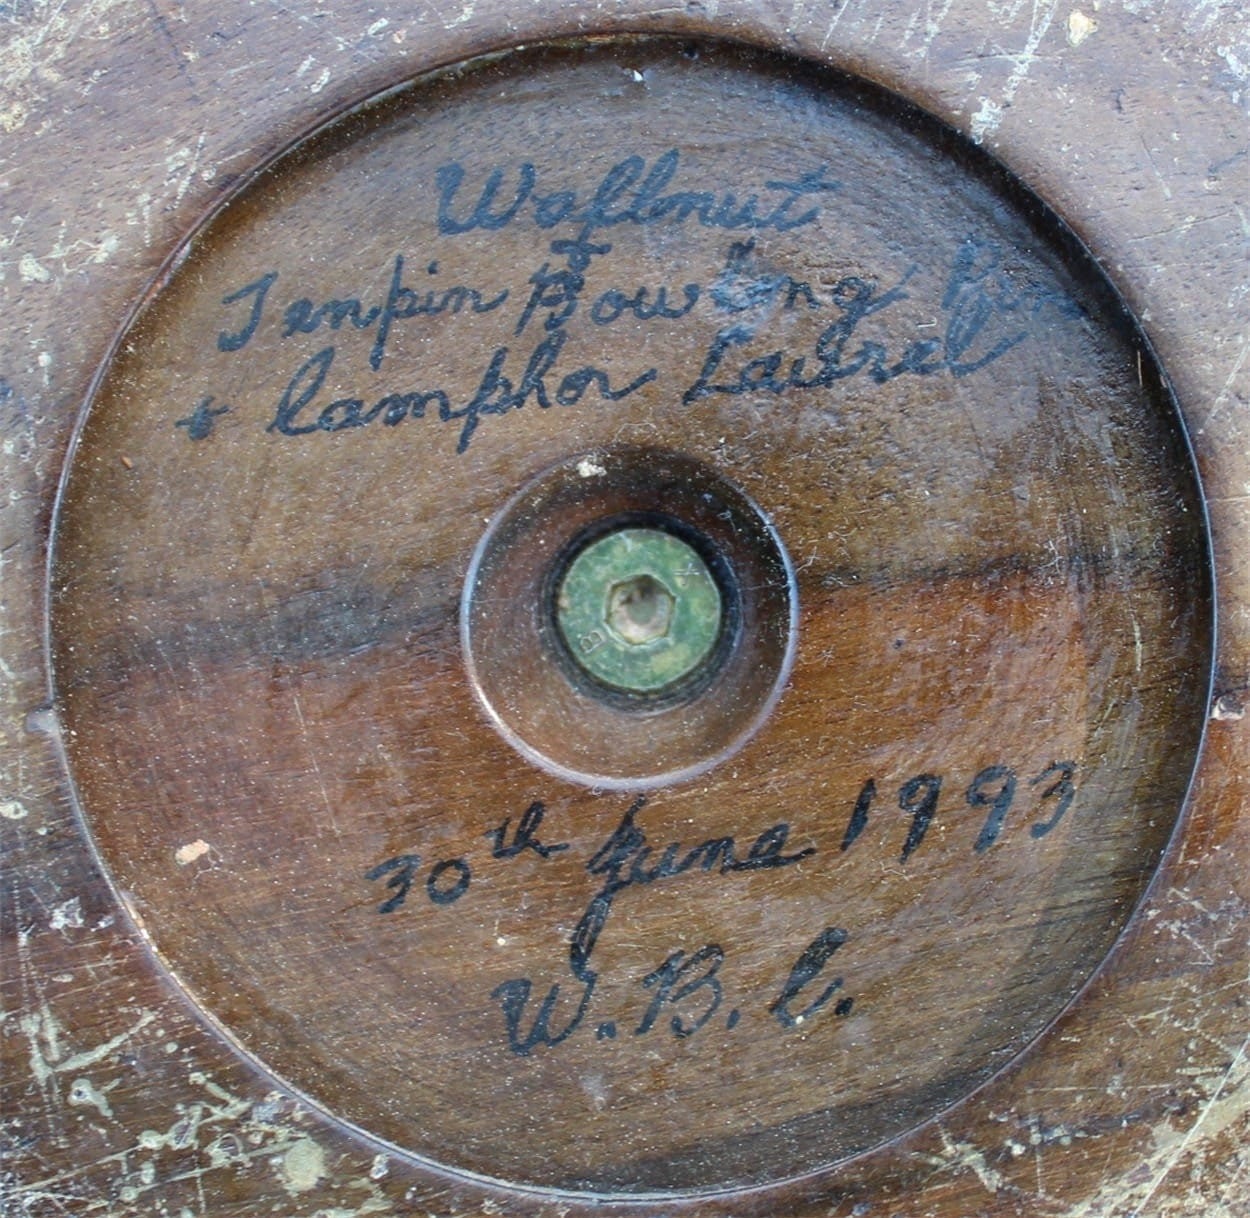 Wallnut
+
Tenpin Bowling Pin
+ Camphor Laurel
B
30th June 1993
W.B.C.